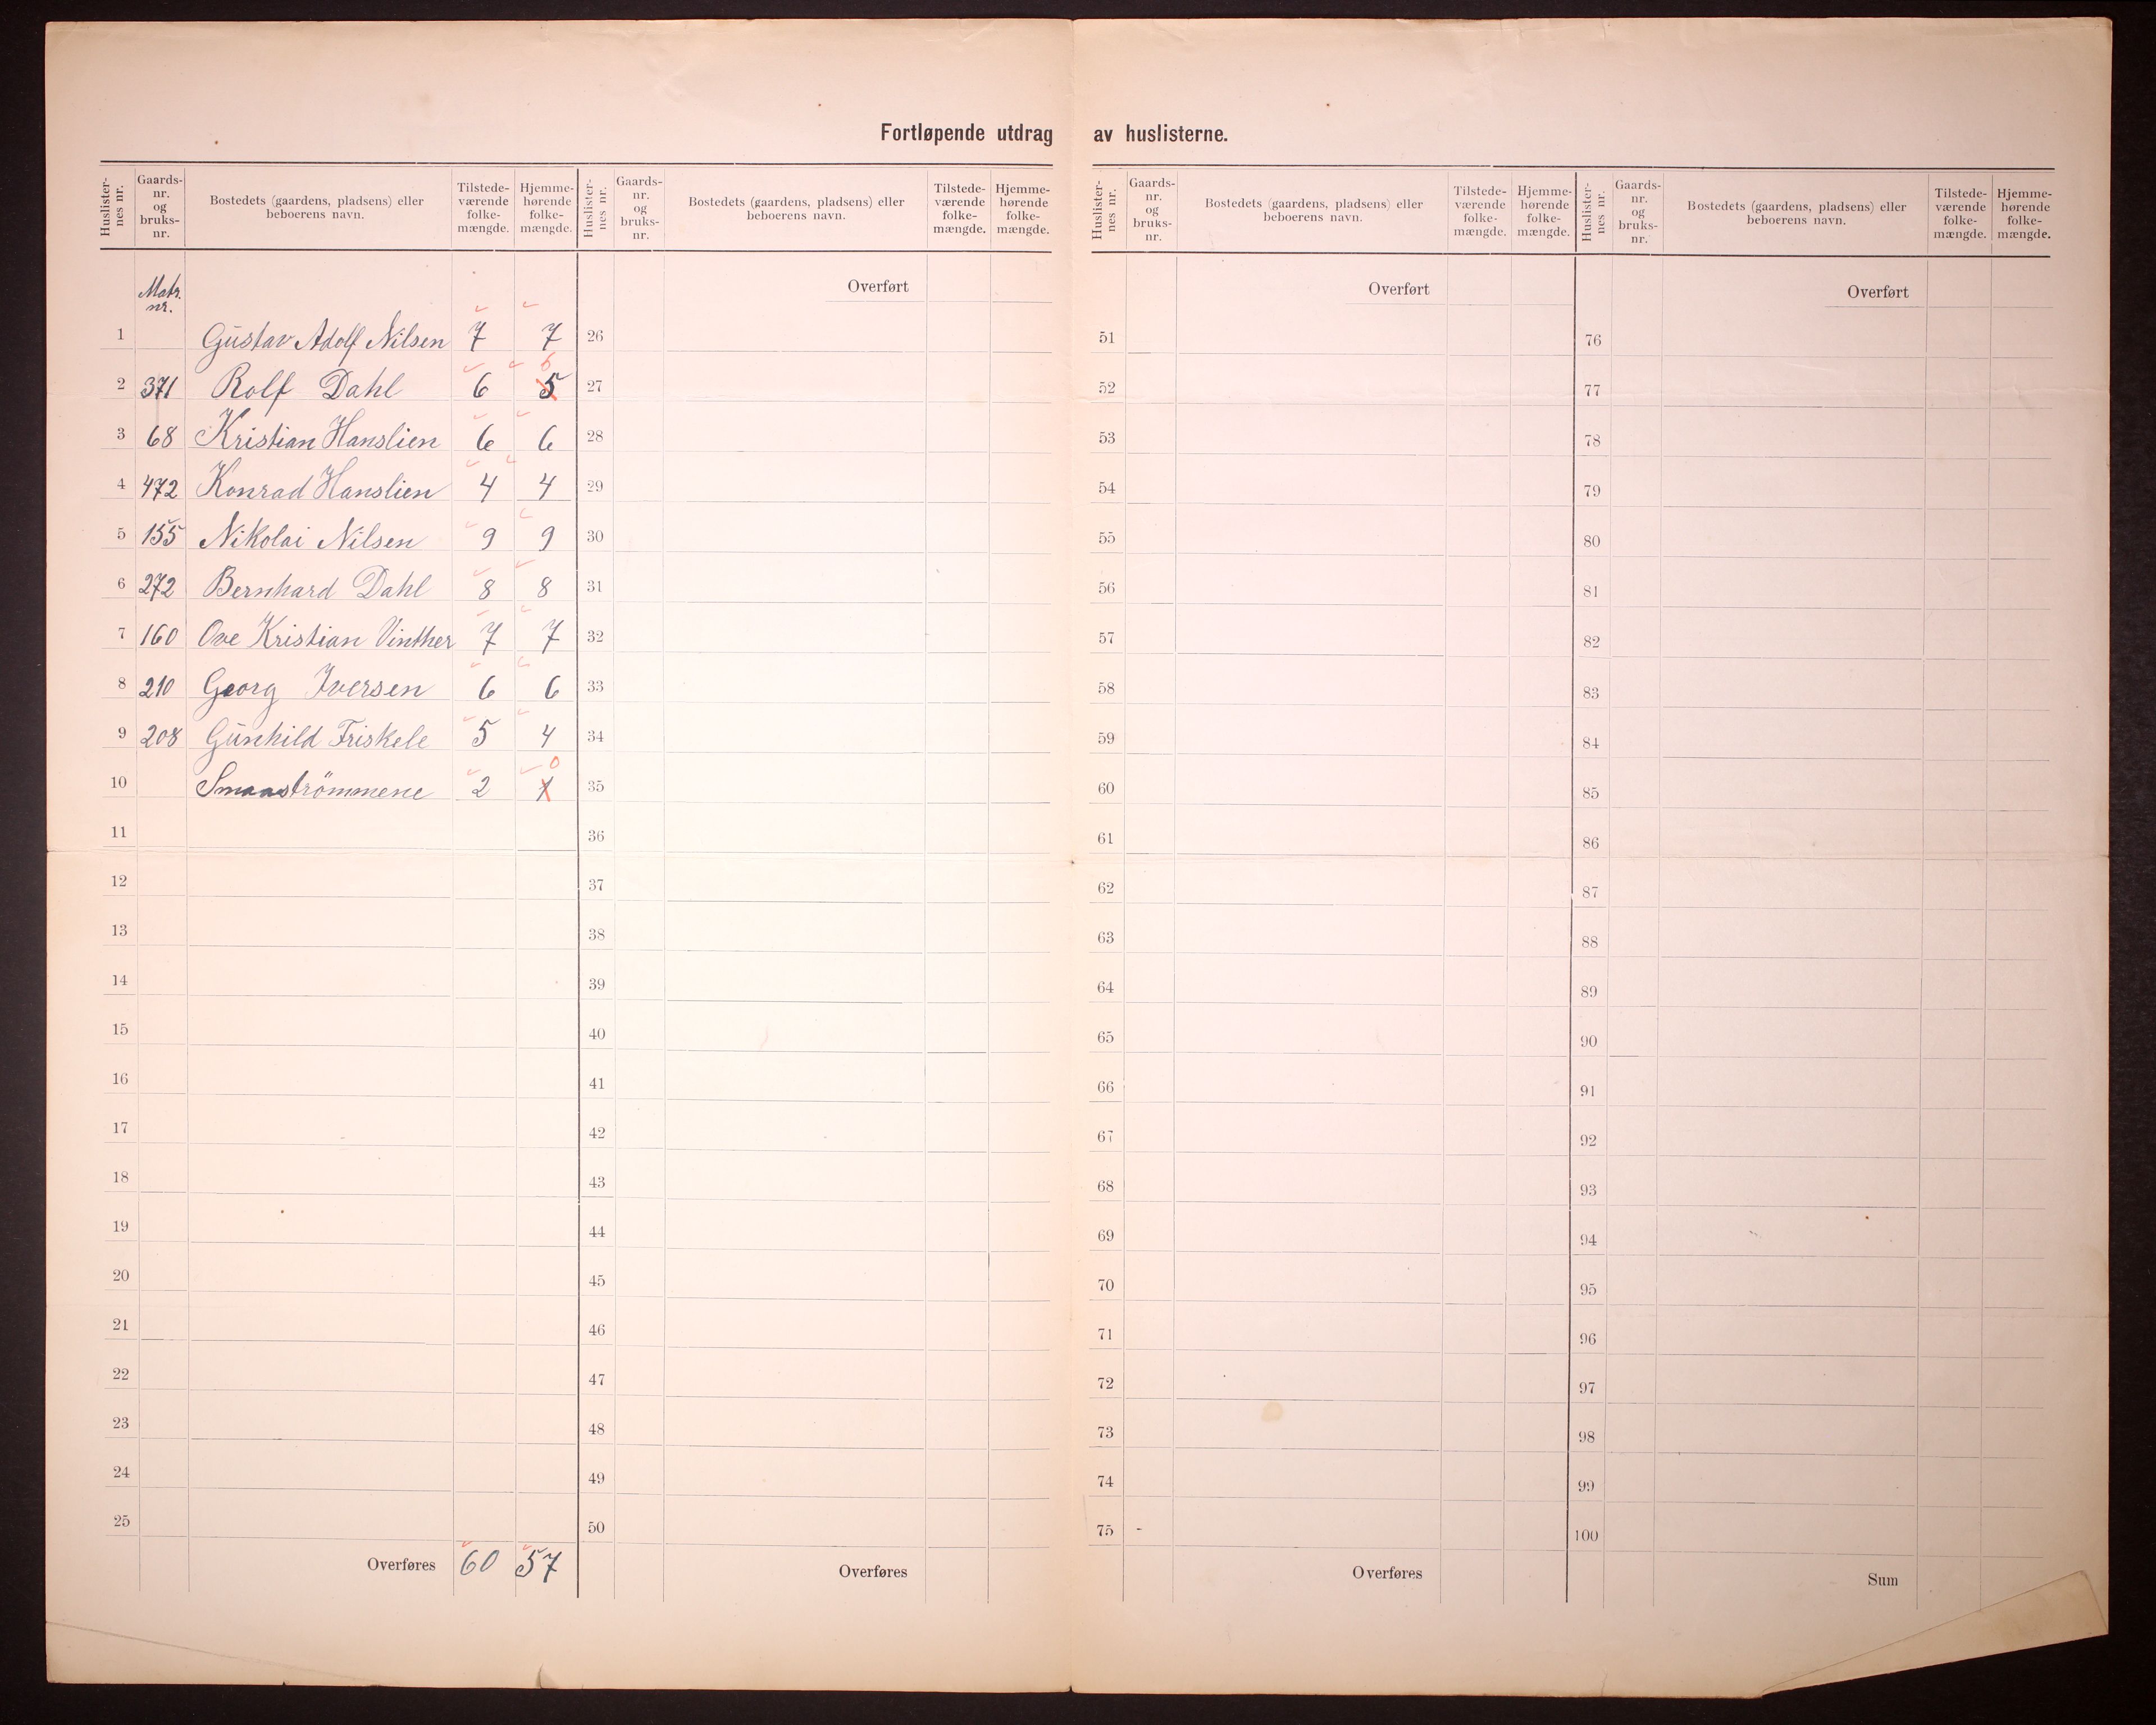 Fortløpende utdrag av huslisterne.
Huslister-nes nr. Gaards-nr. og bruks-nr. Bostedets (gaardens, pladsens) eller beboerens navn. Tilstede-værende folke-mængde. Hjemme-hørende folke-mængde. Huslister-nes nr. Gaards-nr. og bruks-nr. Bostedets (gaardens, pladsens) eller beboerens navn. Tilstede-værende folke-mængde. Hjemme-hørende folke-mængde. Huslister-nes nr. Gaards-nr. og bruks-nr. Bostedets (gaardens, pladsens) eller beboerens navn. Tilstede-værende folke-mængde. Hjemme-hørende folke-mængde. Huslister-nes nr. Gaards-nr. og bruks-nr. Bostedets (gaardens, pladsens) eller beboerens navn. Tilstede-værende folke-mængde. Hjemme-hørende folke-mængde.
Matr. nr. Overført Overført Overført
1 Gustav Adolf Nilsen 7 7 26 51 76
2 371 Rolf Dahl 6 5 6 27 52 77
3 68 Kristian Hanslien 6 6 28 53 78
4 472 Konrad Hanslien 4 4 29 54 79
5 155 Nikolai Nilsen 9 9 30 55 80
6 272 Bernhard Dahl 8 8 31 56 81
7 160 Ove Kristian Vinther 7 7 32 57 82
8 210 Georg Iversen 6 6 33 58 83
9 208 Gunhild Friskele 5 4 34 59 84
10 Smaaströmmene 2 1 0 35 60 85
11 36 61 86
12 37 62 87
13 38 63 88
14 39 64 89
15 40 65 90
16 41 66 91
17 42 67 92
18 43 68 93
19 44 69 94
20 45 70 95
21 46 71 96
22 47 72 97
23 48 73 98
24 49 74 99
25 50 75 - 100
Overføres 60 57 Overføres Overføres Sum